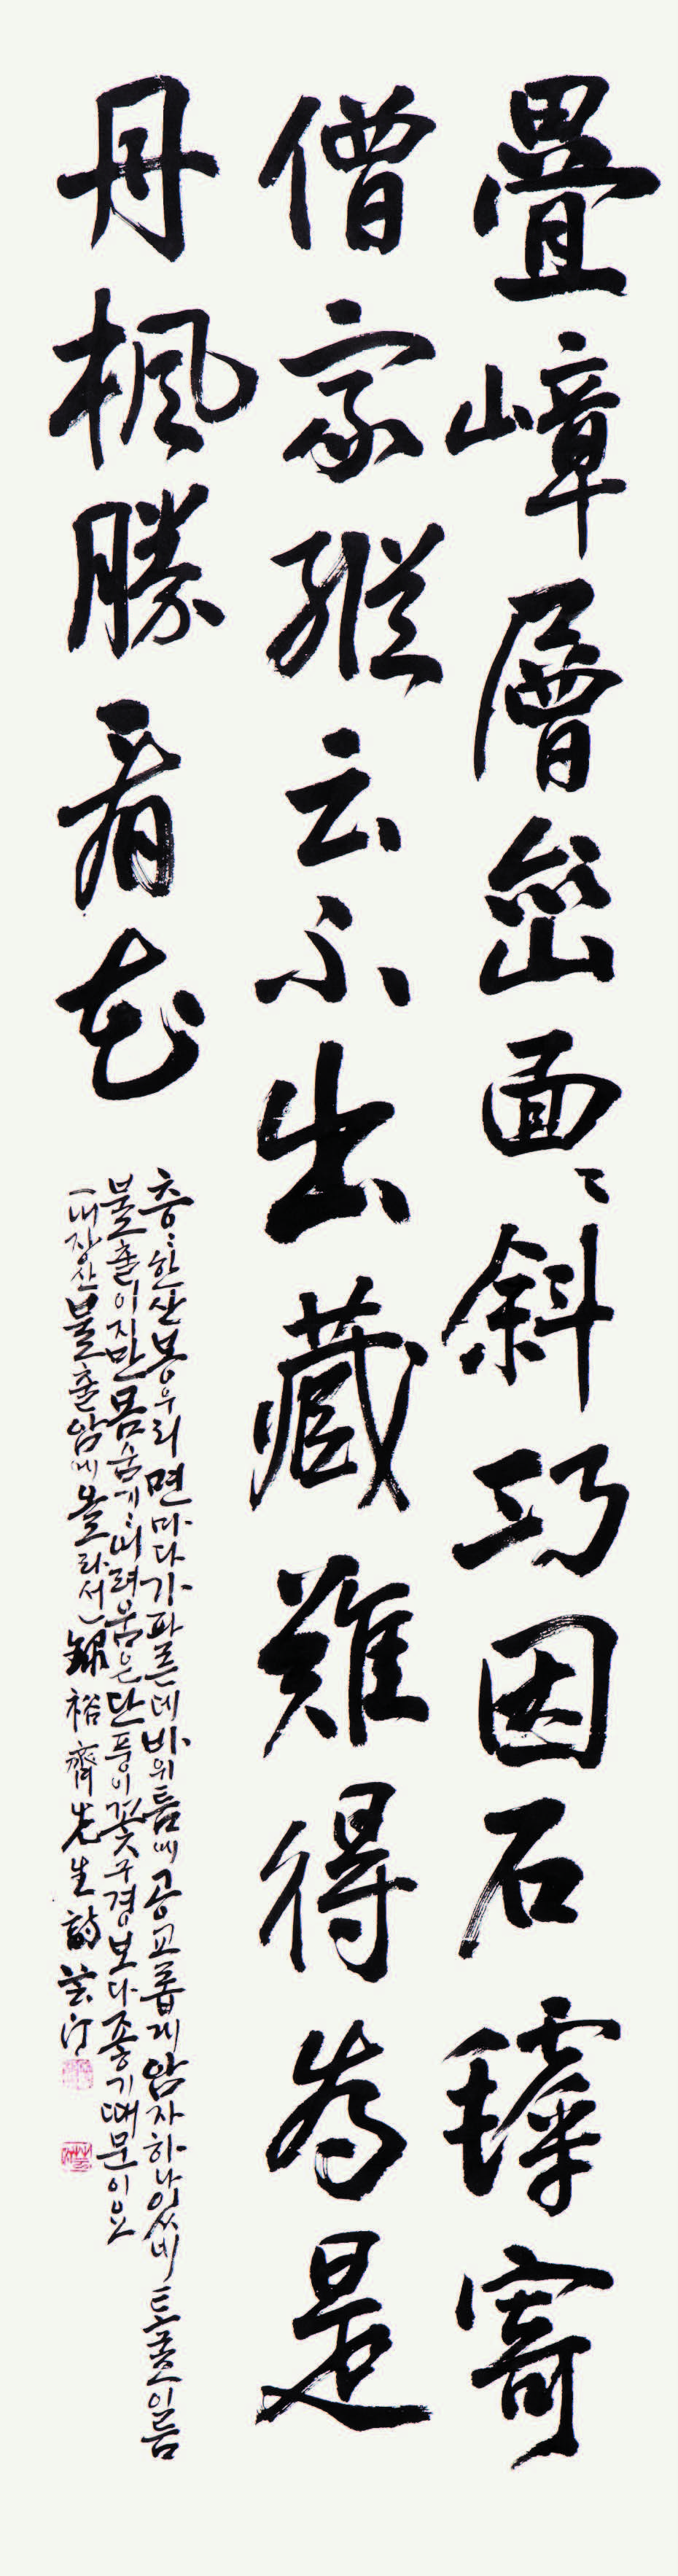 疊嶂層巒面〻斜巧因石罅寄
僧家縱云不出藏難得為是
丹楓勝看花
층〻한산봉우리 면마다가파른데 바위틈에 공교롭게 암자하나있네 암자이름
불출이지만 몸숨기〻 어려움은 단풍이 꽃구경보다 좋기때문이요
(내장산불출암에올라서) 錄裕齋先生詩 芸汀